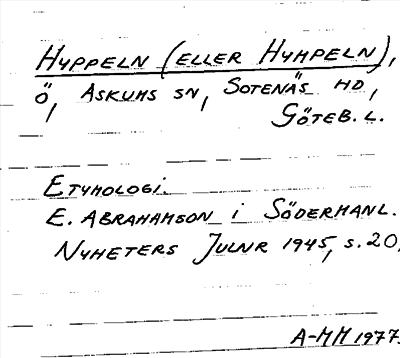 HYPPELN (ELLER HYMPELN),
Ö, ASKUMS SN, SOTENÄS HD,
GÖTEB. L.
ETYMOLOGI.
E. ABRAHAMSON i SÖDERMANL.
NYHETERS JULNR 1945, S. 20.
A-MM 1977.